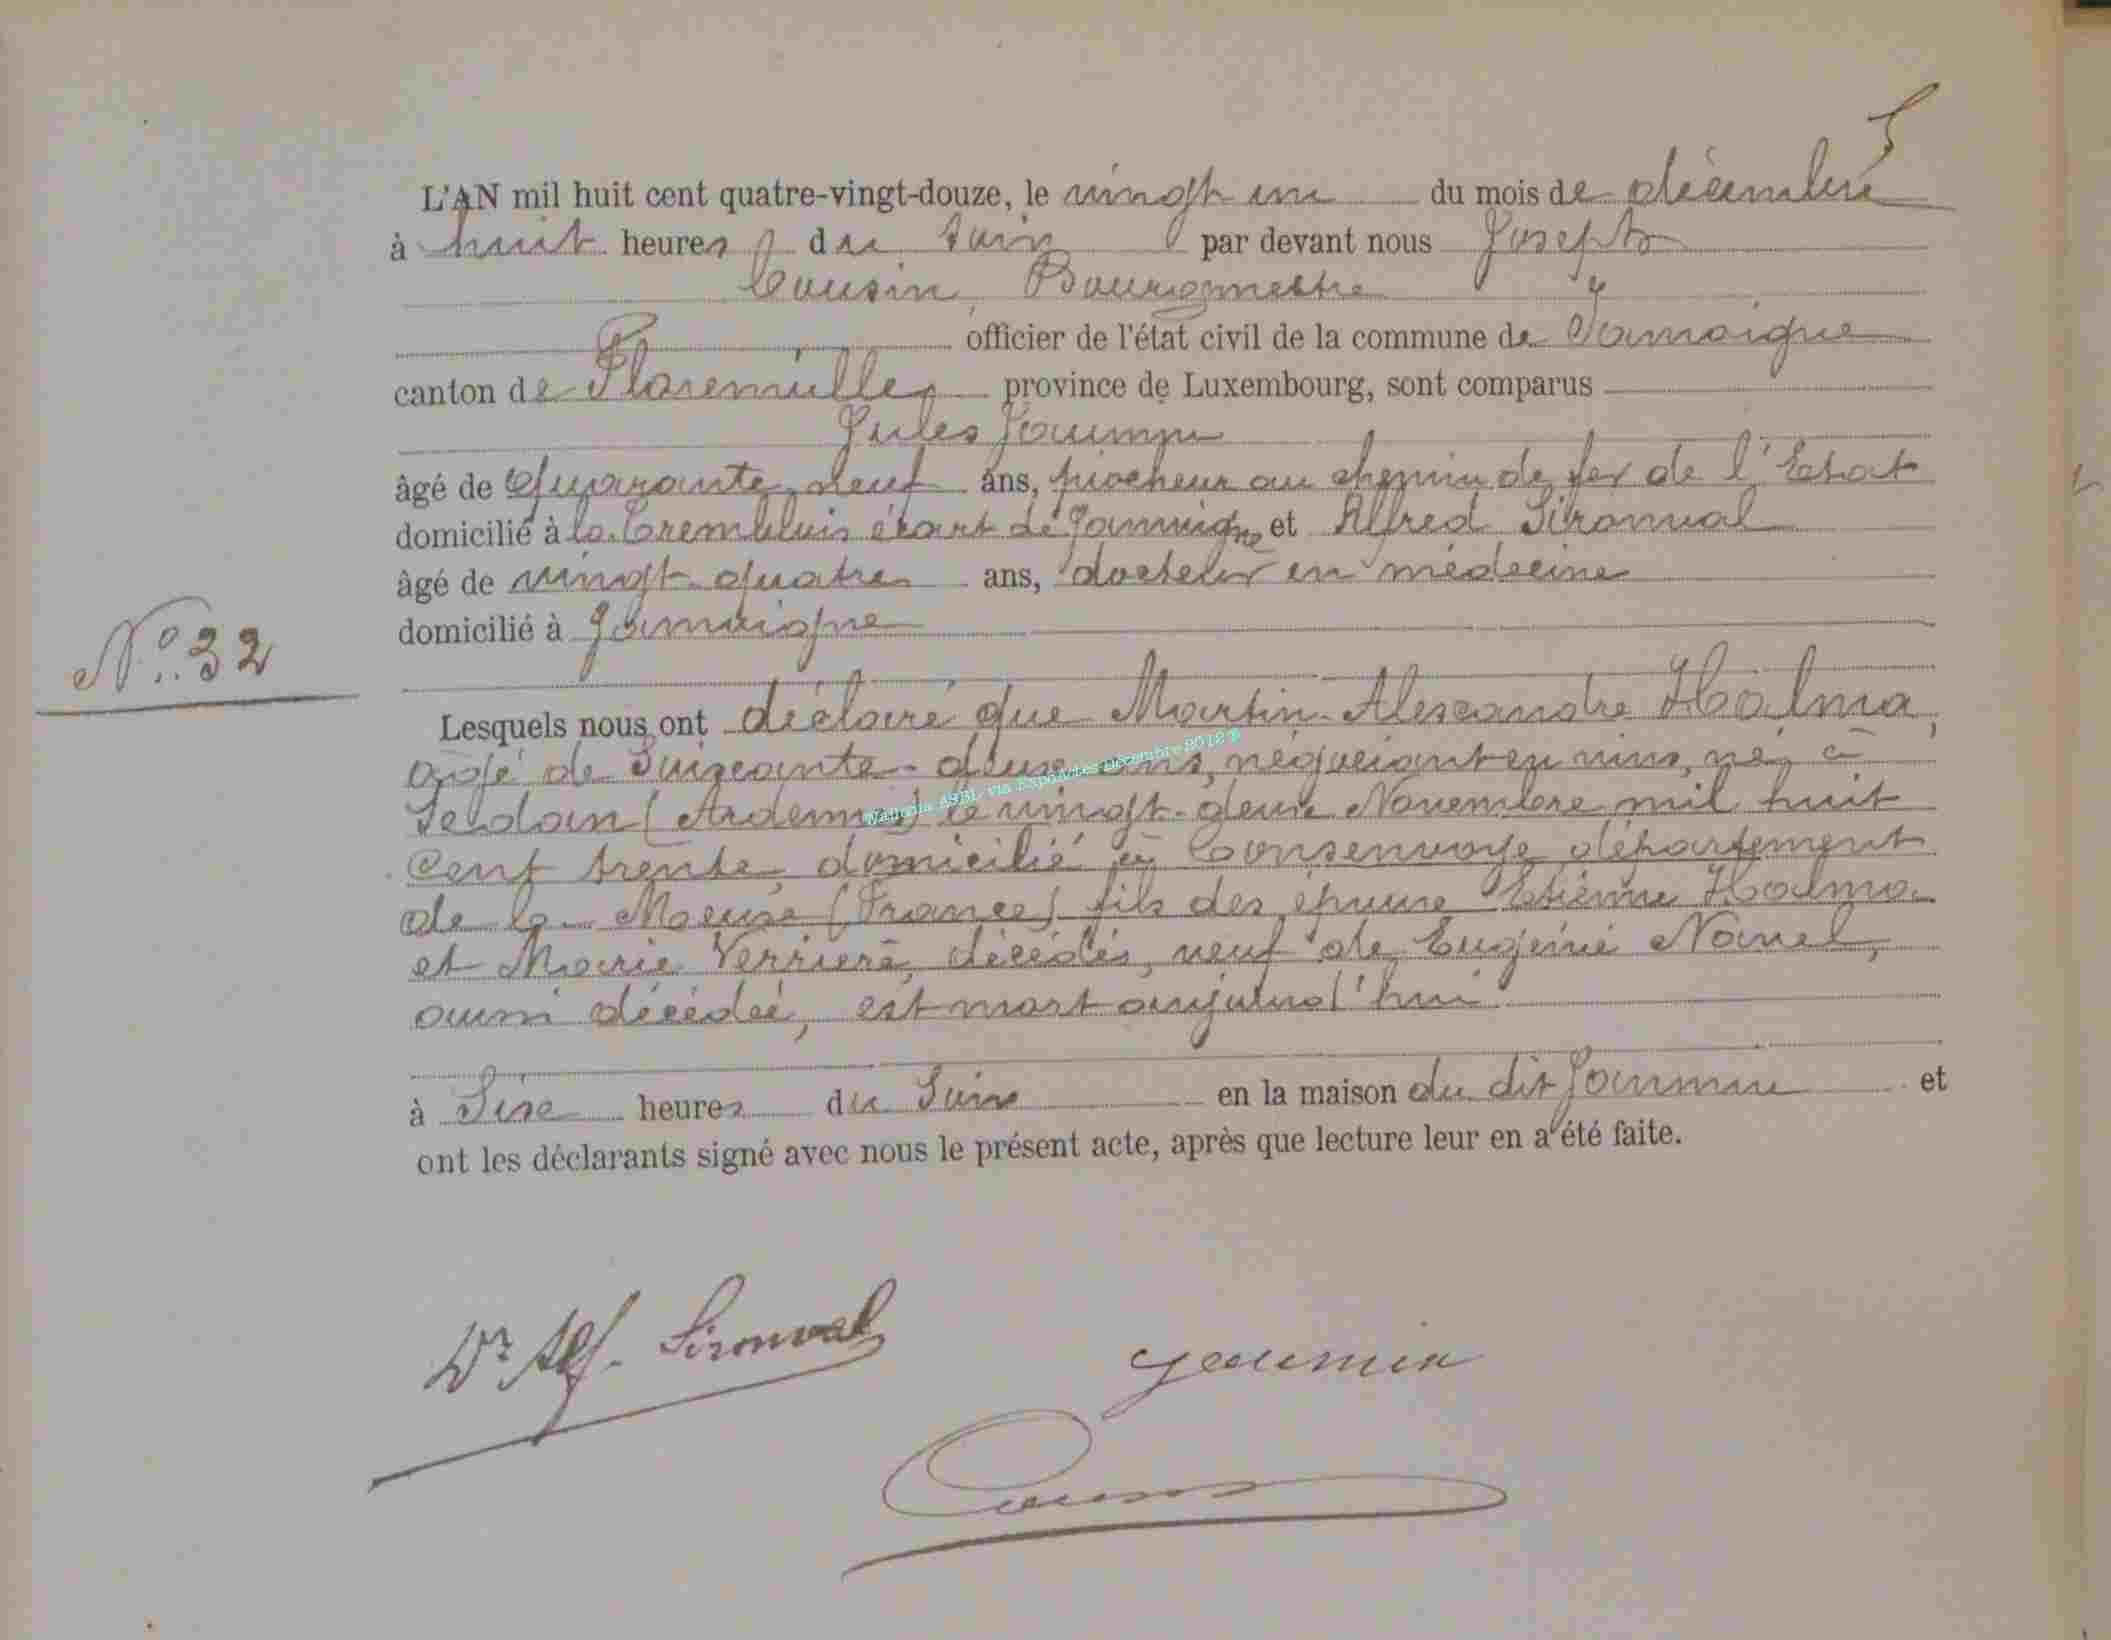 5
L'AN mil huit cent quatre-vingt-douze, le vingt un du mois de décembre
à huit heures du soir par devant nous Joseph
Cousin, Bourgmestre
officier de l'état civil de la commune de Jamoigne
canton de Florenville, province de Luxembourg, sont comparus
Jules
âgé de Quarante neuf ans, piocheur au chemin de fer de l'Etat
domicilié à la Tremblois écart de Jamoigne et Alfred Sironval
âgé de vingt quatre ans, docteur en médecine
domicilié à Jamoigne
N°. 32
Lesquels nous ont déclaré que Martin Alexandre Halma,
agé de Soixante-deux ans, négociant en vins, né à
Sedan (Ardennes) le vingt-deux Novembre mil huit
cent trente, domicilié à Consenvoye département
de la Meuse (France) fils des époux Etienne Halma
et Marie Verrière, décédés, veuf de Eugénie Navel,
aussi décédée, est mort aujourd'hui
à Six heures du Soir en la maison du dit et
ont les déclarants signé avec nous le présent acte, après que lecture leur en a été faite.
Wallonia ASBL via ExpoActes Décembre 2012 ®
Dr Alf. Sironval